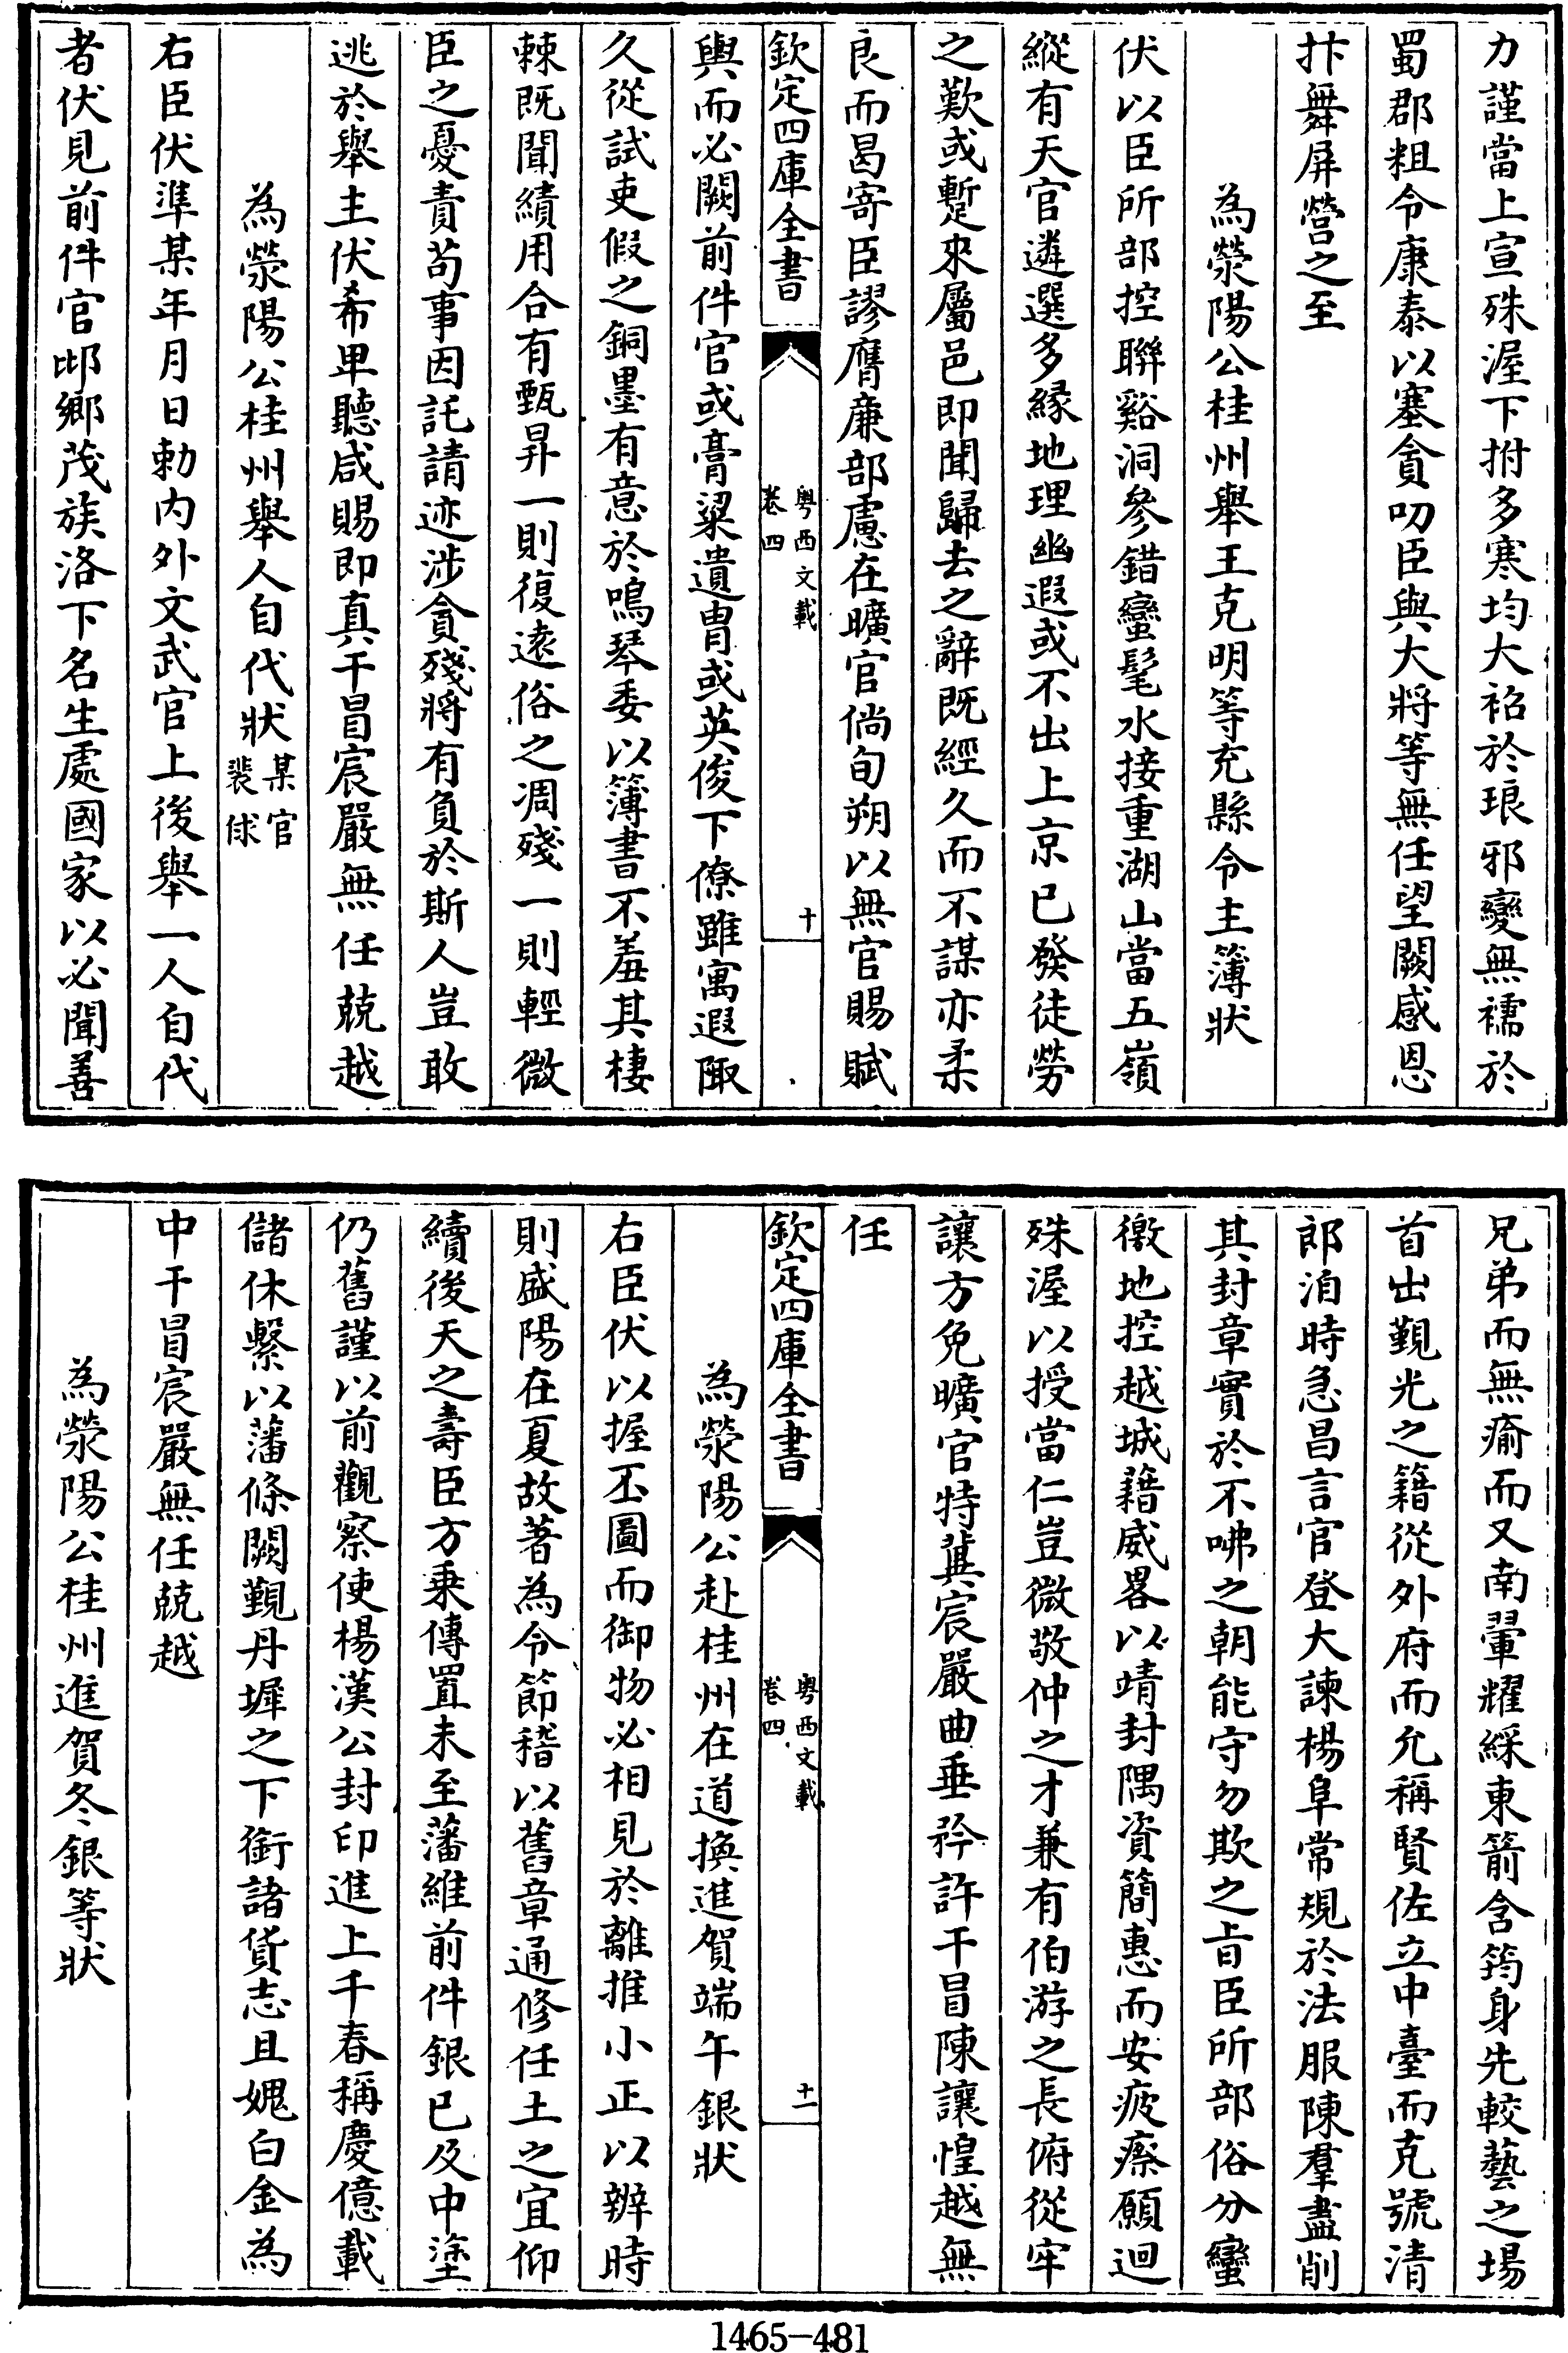 力謹當上宣殊渥下拊多寒均大袑於琅邪變無襦於
蜀郡粗令康泰以塞貪叨臣與大將等無任望闕感恩
抃舞屏營之至
為滎陽公桂州舉王克明等充縣令主簿狀
伏以臣所部控聯谿洞參錯蠻髦水接重湖山當五嶺
縱有天官遴選多緣地理幽遐或不出上京已發徒勞
之歎或蹔來屬邑即聞歸去之辭既經久而不謀亦柔
良而曷寄臣謬膺廉部慮在曠官倘旬朔以無官賜賦
欽定四庫全書
粵西文載
卷四
十
輿而必闕前件官或膏粱遺胄或英俊下僚雖寓遐陬
久從試吏假之銅墨有意於鳴琴委以簿書不羞其棲
棘既聞績用合有甄昇一則復逺俗之凋殘一則輕微
臣之憂責苟事因託請迹涉貪殘將有負於斯人豈敢
逃於舉主伏希卑聽咸賜即真干冒宸嚴無任兢越
為滎陽公桂州舉人自代狀某官裴俅
右臣伏準某年月日勅内外文武官上後舉一人自代
者伏見前件官邶鄉茂族洛下名生處國家以必聞善
兄弟而無瘉而又南翬耀綵東箭含筠身先較藝之場
首出覲光之籍從外府而允稱賢佐立中臺而克號清
郎洎時急昌言官登大諫楊阜常規於法服陳羣盡削
其封章實於不咈之朝能守勿欺之旨臣所部俗分蠻
徼地控越城藉威畧以靖封隅資簡惠而安疲瘵願迴
殊渥以授當仁豈微敬仲之才兼有伯游之長俯從牢
讓方免曠官特冀宸嚴曲垂矜許干冒陳讓惶越無
任
欽定四庫全書
粵西文載
卷四
十一
為滎陽公赴桂州在道換進賀端午銀狀
右臣伏以握丕圖而御物必相見於離推小正以辨時
則盛陽在夏故著為令節稽以舊章通修任土之宜仰
續後天之壽臣方乗傳置未至藩維前件銀已及中塗
仍舊謹以前觀察使楊漢公封印進上千春稱慶億載
儲休繫以藩條闕覲丹墀之下銜諸貨志且媿白金為
中干冒宸嚴無任兢越
為滎陽公桂州進賀冬銀等狀
1465-481